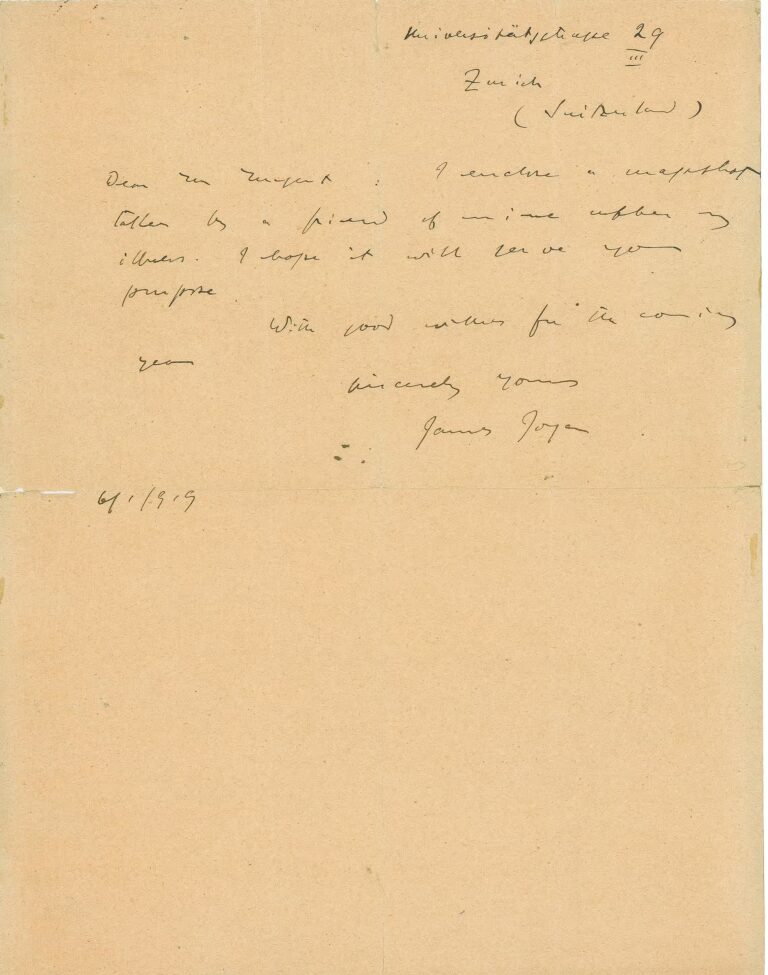 Universitätstrasse 29
III
Zurich
(Switzerland)
Dear Mr : I enclose a snapshot
taken by a friend of mine after my
illness. I hope it will serve your
purpose
With good wishes for the coming
year
sincerely yours
James Joyce
6/1/919